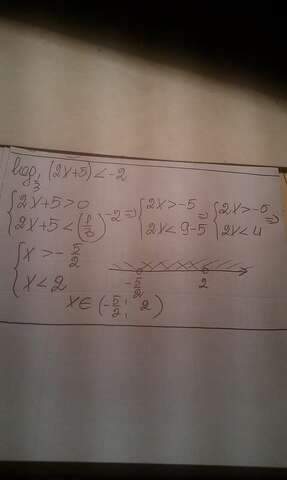 log 1/3 (2x+5) < -2
{ 2x+5>0
{ 2x+5<(1/3)^-2 ⇒ { 2x>-5 { 2x<9-5 ⇒ { 2x>-5 { 2x<4 ⇒
{ x>-5/2
{ x<2
-5/2 2
x∈(-5/2; 2)